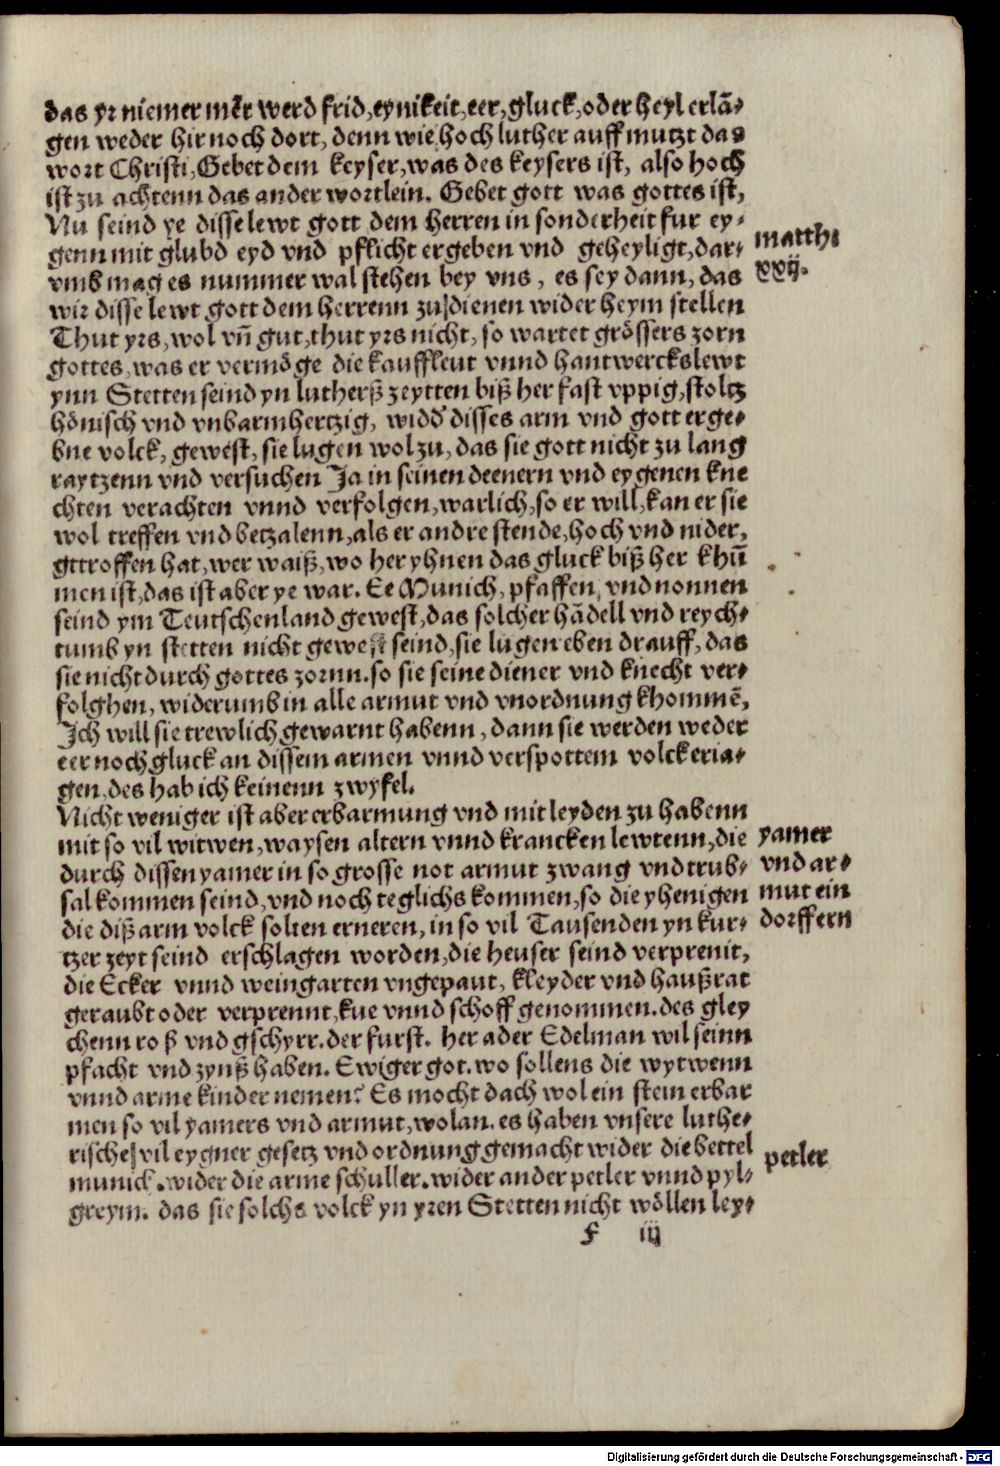 das yr niemer mer̃ werd frid, eynikeit, eer, gluck, oder heyl erlã-
gen weder hir noch dort, denn wie hoch luther auff mutzt das
wort Christi, Gebet dem keyser, was des keysers ist, also hoch
ist zu achtenn das ander wortlein. Gebet gott was gottes ist,
Nu seind ye disse lewt gott dem herren in sonderheit fur ey-
genn mit glubd eyd vnd pflicht ergeben vnd geheyligt, dar-
matthi
vmb mag es nummer wal stehen bey vns, es sey dann, das
xxij.
wir disse lewt gott dem herrenn zu dienen wider heym stellen
Thut yrs, wol vñ gut, thut yrs nicht, so wartet grössers zorn
gottes, was er vermöge die kauffleut vnnd hantwerckslewt
ynn Stetten seind yn lutherß zeytten biß her fast vppig, stoltz
hönisch vnd vnbarmhertzig, widd' disses arm vnd gott erge-
bne volck, gewest, sie lugen wol zu, das sie gott nicht zu lang
raytzenn vnd versuchen Ja in seinen deenern vnd eygenen kne
chten verachten vnnd verfolgen, warlich, so er will, kan er sie
wol treffen vnd betzalenn, als er andre stende, hoch vnd nider,
gttroffen hat, wer waiß, wo her yhnen das gluck biß her khũ
men ist, das ist aber ye war. Ee Munich, pfaffen, vnd nonnen
seind ym Teutschenland gewest, das solcher hãdell vnd reych-
tumb yn stetten nicht gewest seind, sie lugen eben drauff, das
sie nicht durch gottes zornn. so sie seine diener vnd knecht ver-
folghen, widerumb in alle armut vnd vnordnung khommẽ,
Ich will sie trewlich gewarnt habenn, dann sie werden weder
eer noch gluck an dissem armen vnnd verspottem volck erla-
gen, des hab ich keinenn zwyfel.
Nicht weniger ist aber erbarmung vnd mit leyden zu habenn
mit so vil witwen, waysen altern vnnd krancken lewtenn, die
yamer
durch dissen yamer in so grosse not armut zwang vnd trub-
vnd ar-
sal kommen seind, vnd noch teglichs kommen, so die yhenigen
mut ein
die diß arm volck solten erneren, in so vil Tausenden yn kur-
dorffern
tzer zeyt seind erschlagen worden, die heuser seind verprenit,
die Ecker vnnd weingarten vngepaut, kleyder vnd haußrat
geraubt oder verprennt, kue vnnd schoff genommen. des gley
chenn roß vnd gschyrr. der furst. her ader Edelman wil seinn
pfacht vnd zynß haben. Ewiger got. wo sollens die wytwenn
vnnd arme kinder nemen? Es mocht dach wol ein stein erbar
men so vil yamers vnd armut, wolan. es haben vnsere luthe-
rische vil eygner gesetz vnd ordnung gemacht wider die bettel
petler
munick. wider die arme schuller. wider ander petler vnnd pyl-
greym. das sie solchs volck yn yren Stetten nicht wöllen ley-
F iij
Digitalisierung gefördert durch die Deutsche Forschungsgemeinschaft - DFG